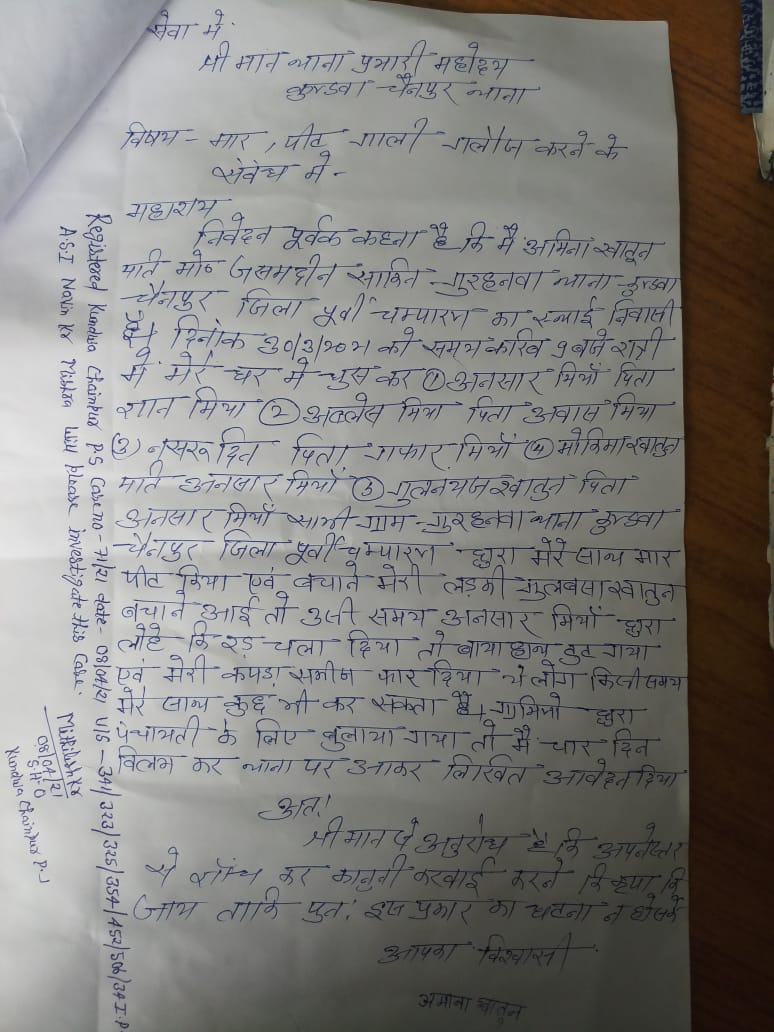 सेवा में
श्री मान थाना प्रभारी महोदय
कुण्डवा चैनपुर थाना
विषय - मार, पीट गाली गलौज करने के
संबंध मे -
महाशय
निवेदन पूर्वक कहना है कि मै अमिना खातून
पति मो० जसमद्दीन साकिन गुरहनवा थाना कुण्डवा
चैनपुर जिला पूर्वी चम्पारण का स्थाई निवासी
हूँ दिनांक 30/3/2021 को समय करिव 9 बजे रात्री
मे मेरे घर मे घुस कर ① अनसार मियाँ पिता
शान मिया ② अल्लेस मिया पिता अवास मिया
③ नसरूदिन पिता गफार मियाँ ④ मोकिमा खातुन
पति अनसार मियाँ ⑤ गुलनयज खातुन पिता
अनसार मियाँ साभी ग्राम गुरहनवा थाना कुण्डवा
चैनपुर जिला पूर्वी चम्पारण द्वारा मेरे साथ मार
पीट किया एवं बचाने मेरी लड़की गुलबसा खातुन
बचाने आई तो उसी समय अनसार मियाँ द्वारा
लोहे कि रड चला दिया तो बाया हाथ टुट गया
एवं मेरी कपड़ा समीज फार दिया ये लोग किसी समय
मेरे साथ कुछ भी कर सकता है। ग्रामिणो द्वारा
पंचायती के लिए बुलाया गया तो मै चार दिन
विलम कर थाना पर आकर लिखित आवेदन दिया
अत!
श्री मान से अनुरोध है कि अपने स्तर
से जाँच कर कानुनी करवाई करने कि कृपा कि
जाय ताकि पुन! इस प्रकार का घटना न हो सके
आपका विश्वासी
अमीना खातून
Registered Kundwa Chainpur P.S Case no - 71/21 date - 08/04/21 U/S - 341/323/325/354/452/506/34 I.P.
A.S.I Navin Kr Mishra will please investigate this case.
Mithilesh Kr
08/04/21
S.H.O
Kundwa Chainpur P.S